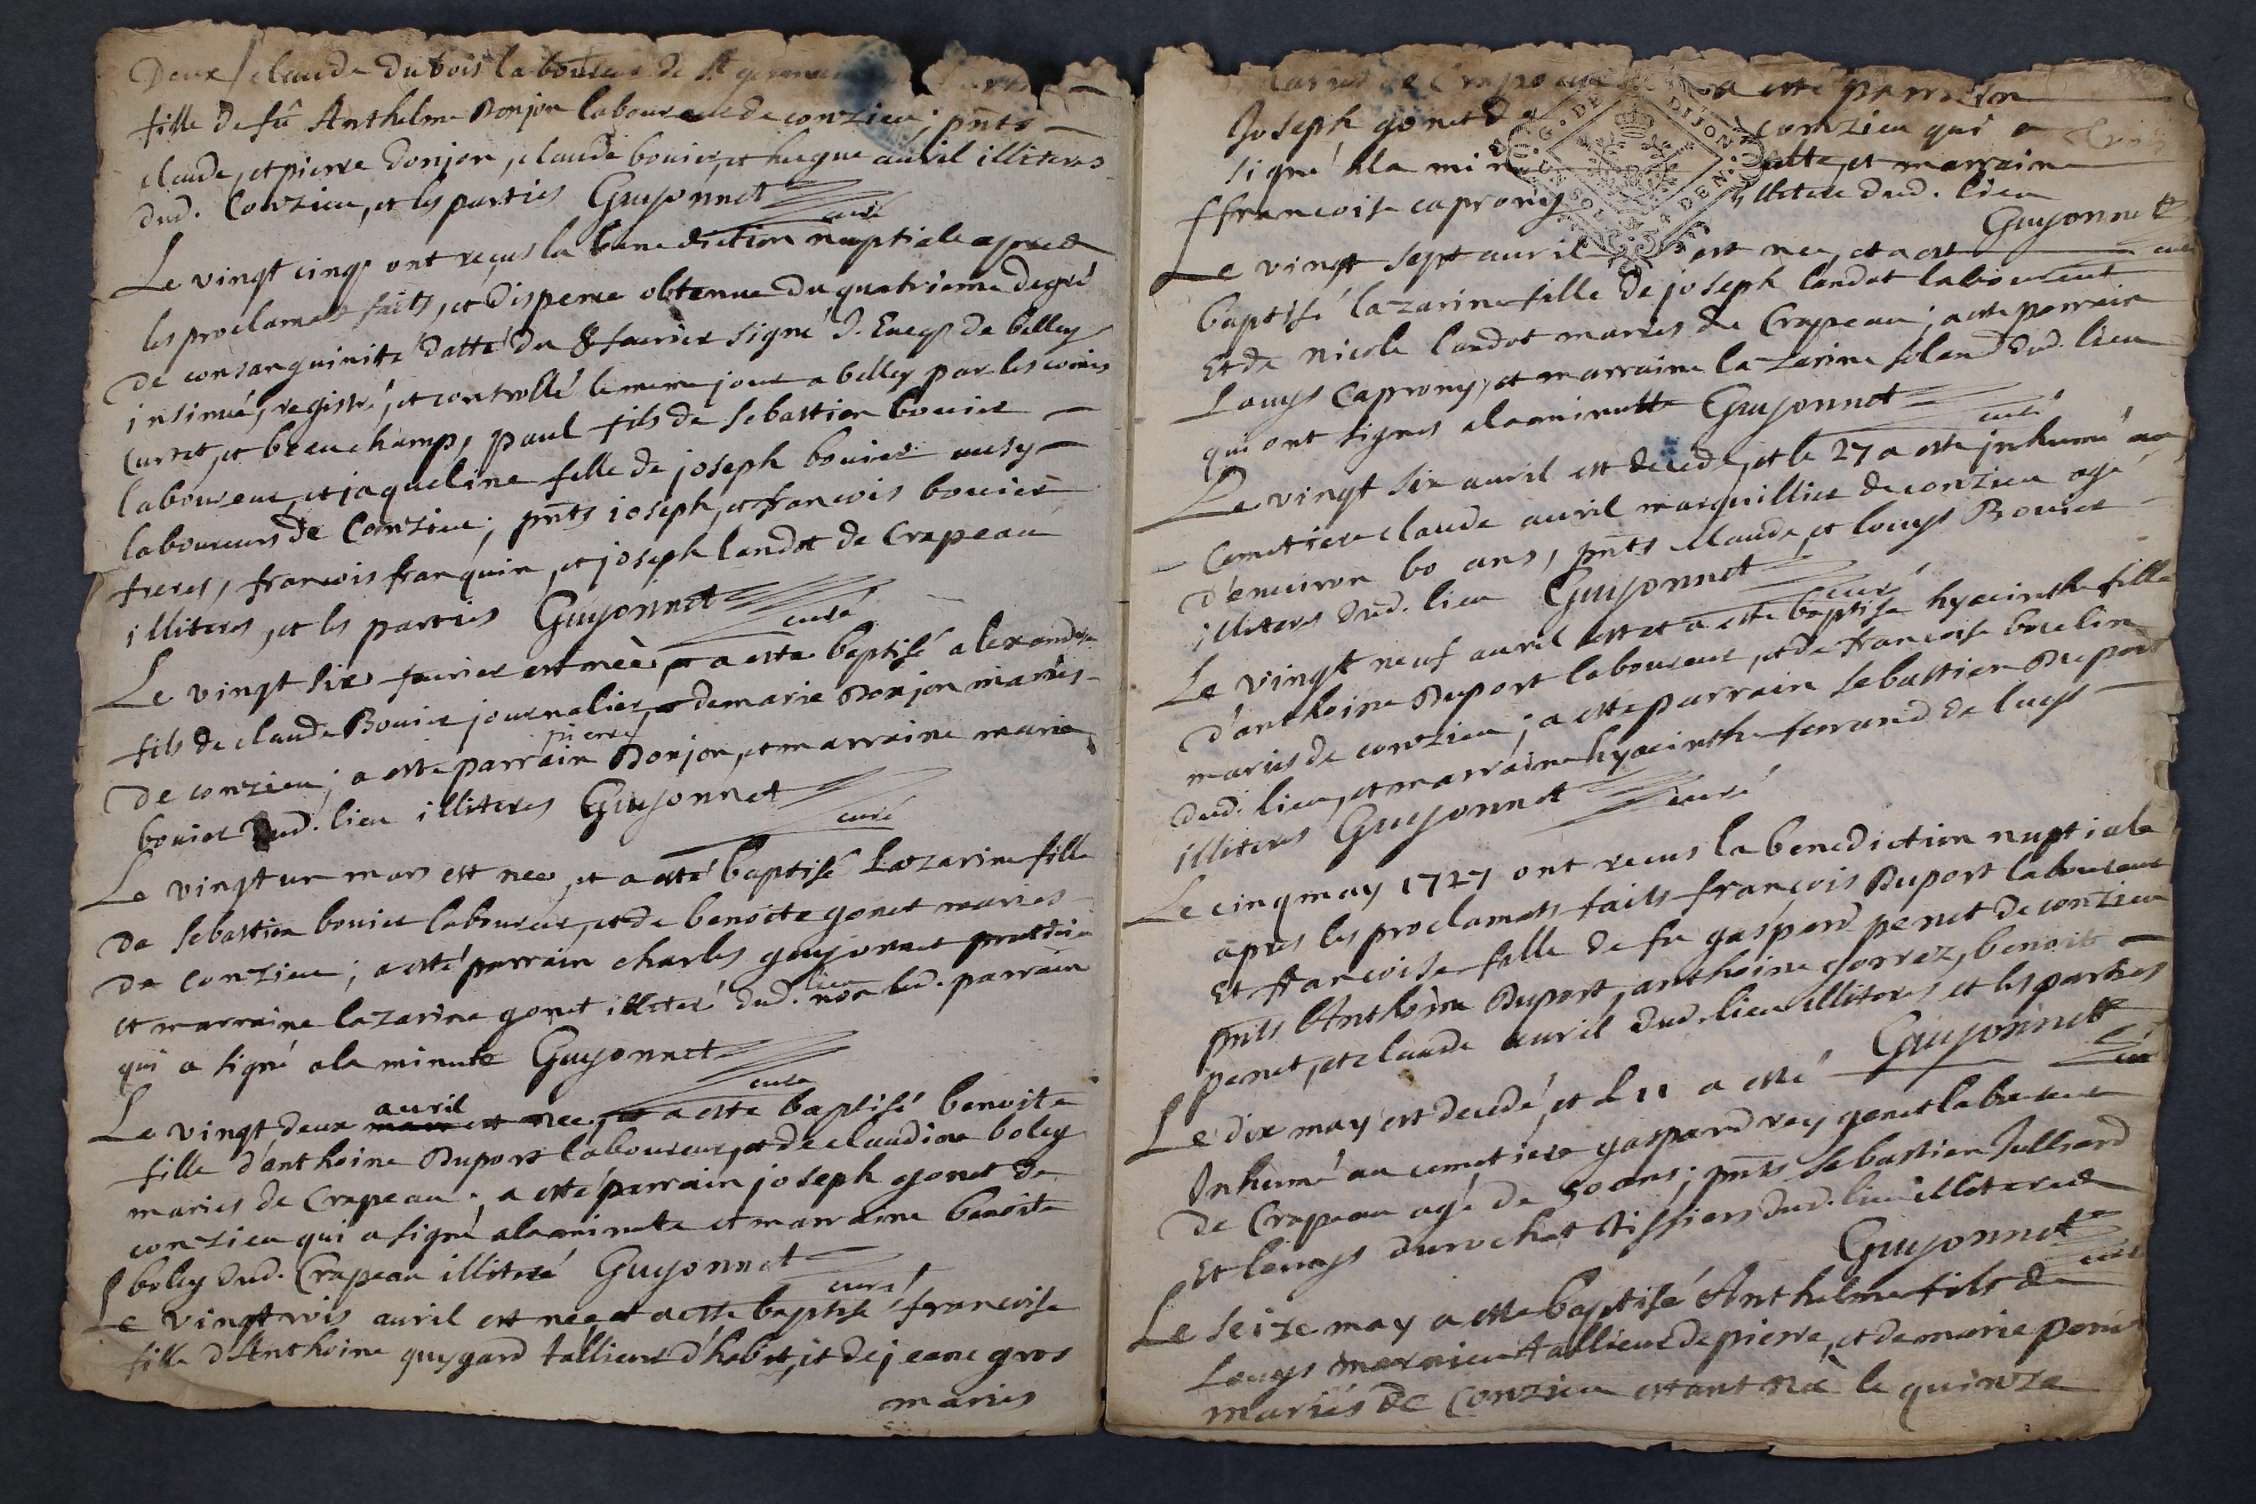 Deux claude Dubois laboureur de St germain
fille de fû Anthelme Donjon laboureur de conzieu; pnts
claude, et pierre donjon, claude bouier, et hugue auril illiteres
dud. Conzieu, et les parties Guyonnet curé
Le vingt cinq ont reçus la benediction nuptiale apres
les proclamats faits, et dispense obtenue du quatrieme degré
de consanguinité datté du 8 feurier signé J. Eueqs de belley
insinué, registré, et controllé le meme jour a belley par les commis
Curtet, et beauchamp, paul fils de Sebastien bouier
laboureur, et jaqueline fille de joseph bouier ausy
laboureurs de Conzieu; pnts joseph, et francois bouier
freres, francois franquin, et joseph landot de Crapeau
illiteres, et les parties Guyonnet curé
Le vingt six feurier est neè, et a esté baptisé alexandre
fils de claude Bouier journalier, et de marie Donjon mariés
de conzieu; a esté parrain pierre Donjon, et marraine marie
bouier dud. lieu illiteres Guyonnet curé
Le vingt un mars est nee, et a esté baptisé Lazarine fille
de Sebastien bouier laboureur, et de benoite gonet maries
de Conzieu; a esté parrain charles guyonnet
et marraine lazarine gonet illiteré dud. lieu non led. parrain
qui a signé a la minute Guyonnet curé
Le vingt deux avril est nee, et a esté baptisé benoite
fille d'anthoine Duport laboureur, et de claudine boley
maries de Crapeau; a esté parrain joseph gonet de
conzieu qui a signé a la minute et marraine benoite
boley dud. Crapeau illiteré Guyonnet curé
Le vingt trois auril est nee et a esté baptisé francoise
fille d'Anthoine guygard tallieur d'habit, et de jeane gros
maries
maries de Crapeau a esté parrain
Joseph gonet de conzieu qui a
signé a la minutte, et marraine
ffrancoise caprony illiteré dud. lieu
Guyonnet curé
Le vingt sept auril est nee, et a esté
baptisé lazarine fille de joseph landot laboureur
Et de nicole landot maries de Crapeau; a esté parrain
Louys Caprony, et marraine lazarine soland dud. lieu
qui ont signés a la minutte Guyonnet curé
Le vingt six auril est decedé, et le 27 a esté jnhumé au
Cemetiere claude auril marguillier de conzieu agé
d'enuiron 60 ans, pnts claude, et louys Bouier
illiteres dud. lieu Guyonnet curé
Le vingt neuf auril est et a esté baptisé hyacinthe fille
d'anthoine Duport laboureur, et de francoise
mariés de conzieu; a esté parrain sebastien Duport
dud. lieu, et marraine hyacinthe ferrand de
illiteres Guyonnet curé
Le cinq may 1727 ont recus la benediction nuptiale
apres les proclamats faits francois Duport laboureur
Et francoise fille de fu gaspard penet de conzieu
pnts Anthoine Duport, anthoine gorrez, benoit
penet, et claude auril dud. lieu illiteres et les parties
Guyonnet curé
Le dix may est decedé, et L 11 a esté
Inhumé au cemetiere gaspard rey gonet laboureur
de Crapeau agé de 50 ans; pnts Sebastien Julliard
Et louys durochat tissiers dud. lieu illiteres
Guyonnet curé
Le seize may a esté baptisé Anthelme fils de
Louys marnieu tallieur de pierre, et de marie
mariés de Conzieu estant né le quinze
G. DE DIJON